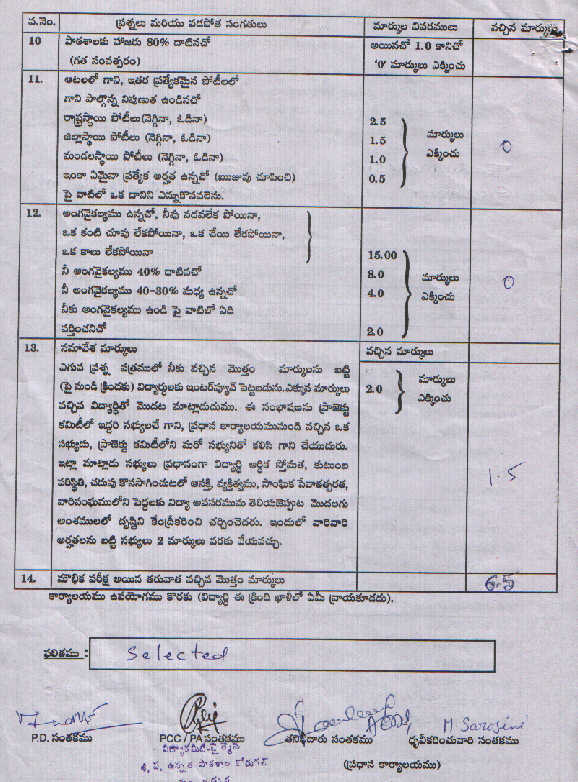 ప.నెం. ప్రశ్నలు మరియు పడపోత సంగతులు మార్కుల వివరములు వచ్చిన మార్కులు
10 పాఠశాలకు హాజరు 80% దాటినచో అయినచో 1.0 కానిచో
(గత సంవత్సరం) '0' మార్కులు ఎక్కించు
11. ఆటలలో గాని, ఇతర ప్రత్యేకమైన పోటీలలో
గాని పాల్గొన్న నిపుణుత ఉండినచో
రాష్ట్రస్థాయి పోటీలు(నెగ్గినా, ఓడినా) 2.5
జిల్లాస్థాయి పోటీలు (నెగ్గినా, ఓడినా) 1.5 మార్కులు 0
మండలస్థాయి పోటీలు (నెగ్గినా, ఓడినా) 1.0 ఎక్కించు
ఇంకా ఏమైనా ప్రత్యేక అర్హత ఉన్నచో (ఋజువు చూపించి) 0.5
పై వాటిలో ఒక దానిని ఎన్నుకొనవలెను.
12. అంగవైకల్యము ఉన్నచో, నీవు నడవలేక పోయినా,
ఒక కంటి చూపు లేకపోయినా, ఒక చేయి లేకపోయినా,
ఒక కాలు లేకపోయినా 15.00
నీ అంగవైకల్యము 40% దాటినచో 8.0 మార్కులు 0
నీ అంగవైకల్యము 40-30% మధ్య ఉన్నచో 4.0 ఎక్కించు
నీకు అంగవైకల్యము ఉండి పై వాటిలో ఏది
వర్తించనిచో 2.0
13. సమావేశ మార్కులు వచ్చిన మార్కులు
ఎగువ ప్రశ్న పత్రములో నీకు వచ్చిన మొత్తం మార్కులను బట్టి
(పై నుండి క్రిందకు) విద్యార్థులకు ఇంటర్వ్యూవ్ పెట్టబడును.ఎక్కువ మార్కులు 2.0 మార్కులు
వచ్చిన విద్యార్థితో మొదట మాట్లాడుదుము. ఈ సంభాషణను ప్రాజెక్టు ఎక్కించు
కమిటీలో ఇద్దరి సభ్యులచే గాని, ప్రధాన కార్యాలయమునుండి వచ్చిన ఒక
సభ్యుడు, ప్రాజెక్టు కమిటీలోని మరో సభ్యునితో కలిసి గాని చేయుదురు.
ఇట్లా మాట్లాడు సభ్యులు ప్రధానంగా విద్యార్థి ఆర్థిక స్తోమత, కుటుంబ
పరిస్థితి, చదువు కొనసాగించుటలో ఆసక్తి, వ్యక్తిత్వము, సాంఘిక సేవాతత్పరత, 1.5
వారిసంఘములోని పెద్దలకు విద్యా అవసరమును తెలియజెప్పుట మొదలగు
అంశములలో దృష్టిని కేంద్రీకరించి చర్చించెదరు. ఇందులో వారివారి
అర్హతలను బట్టి సభ్యులు 2 మార్కులు వరకు వేయవచ్చు.
14. మౌఖిక పరీక్ష అయిన తరువాత వచ్చిన మొత్తం మార్కులు 6.5
కార్యాలయము ఉపయోగము కొరకు (విద్యార్థి ఈ క్రింది ఖాళీలో ఏమీ వ్రాయకూడదు).
ఫలితము : Selected
M. Sarojini
P.D. సంతకము PCC / PA సంతకము తనిఖీదారు సంతకము ధృవీకరించువారి సంతకము
(ప్రధాన కార్యాలయము)